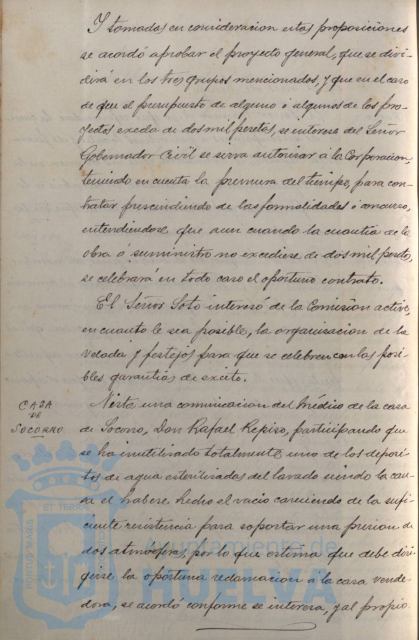 Y tomadas en consideracion estas proposiciones
se acordó aprobar el proyecto general, que se divi-
dirá en los tres grupos mencionados, y que en el caso
de que el presupuesto de alguno ó algunos de los pro-
yectos exceda de dos mil pesetas, se interese del Señor
Gobernador Civil se sirva autorizar á la Corporacion,
teniendo en cuenta la premura del tiempo, para con-
tratar prescindiendo de las formalidades de concurso,
entendiendose que aun cuando la cuantía de la
obra ó suministro no excediese de dos mil pesetas,
se celebrará en todo caso el oportuno contrato.
El Señor Soto interesó de la Comision active,
en cuanto le sea posible, la organizacion de la
velada y festejos para que se celebren con las posi-
bles garantías de exito.
CASA
DE
SOCORRO
Vista una comunicacion del Médico de la casa
de Socorro, Don Rafael Repiso, participando que
se ha inutilizado totalmente uno de los deposi-
tos de agua esterilizada del lavado siendo la cau-
sa el haberse hecho el vacio careciendo de la sufi-
ciente resistencia para soportar una presion de
dos atmosferas, por lo que estima que debe diri-
girse la oportuna reclamacion á la casa vende-
dora, se acordó conforme se interesa, y al propio
Ayuntamiento de
HUELVA